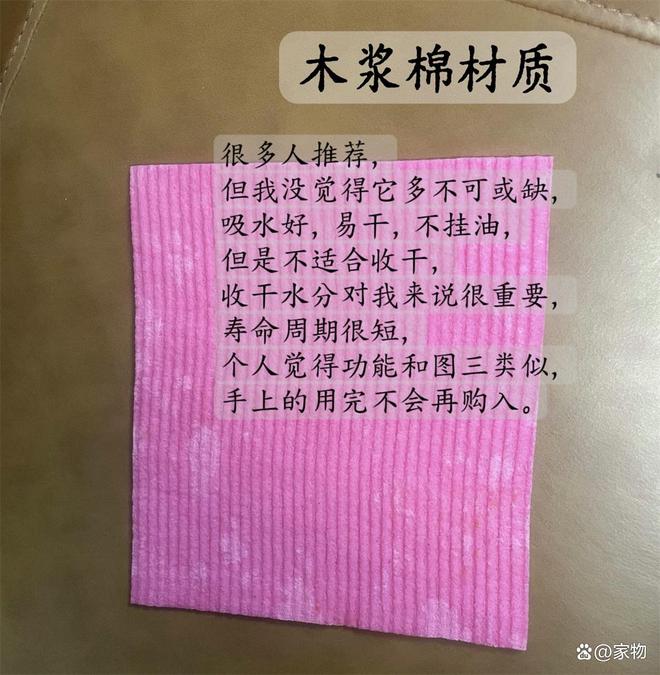 木浆棉材质
很多人推荐，
但我没觉得它多不可或缺，
吸水好，易干，不挂油，
但是不适合收干，
收干水分对我来说很重要，
寿命周期很短，
个人觉得功能和图三类似，
手上的用完不会再购入。
@家物